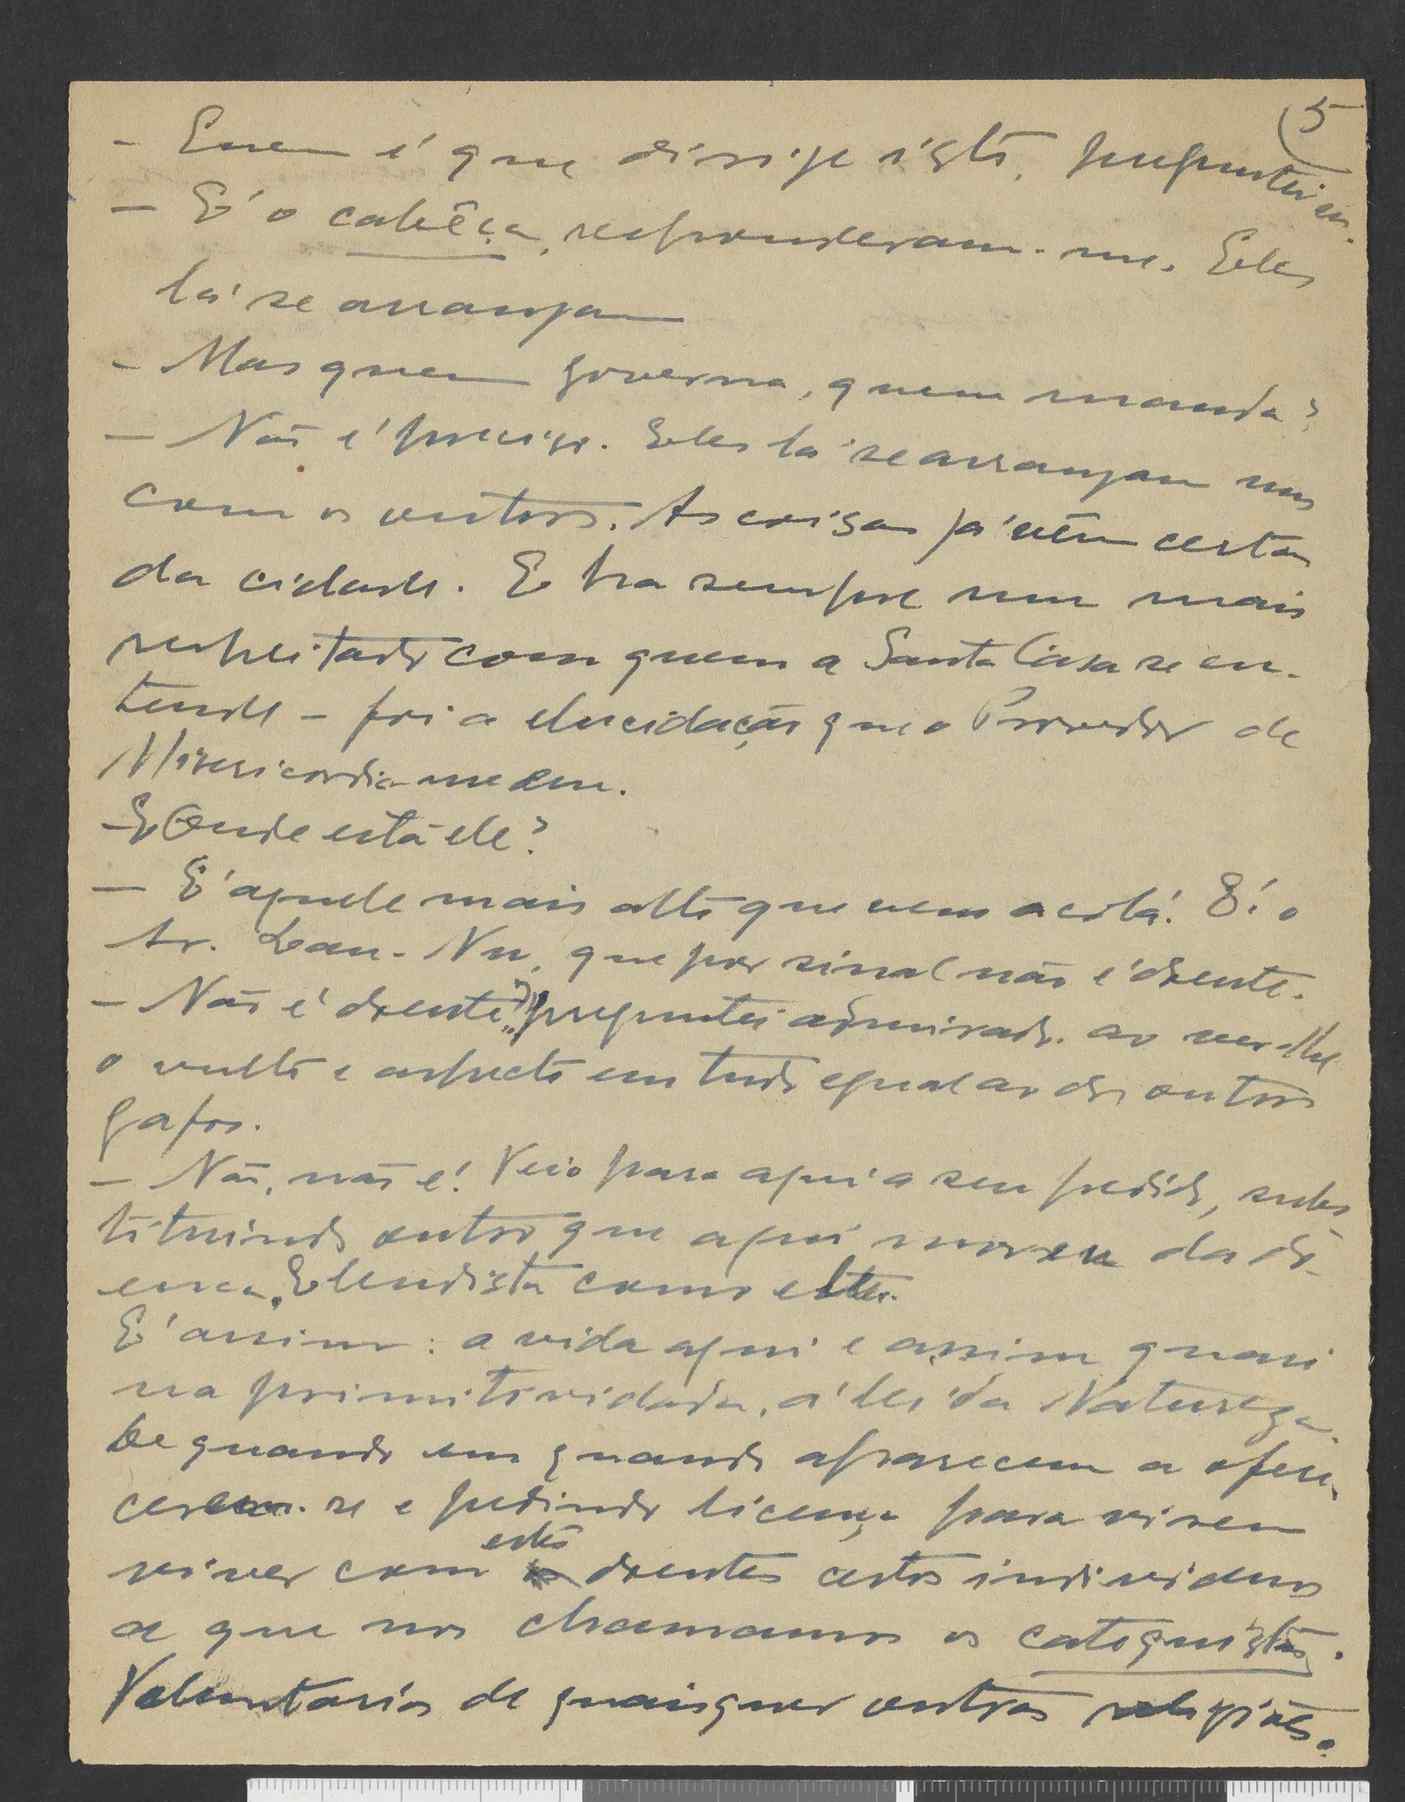 5
- Quem é que dirije isto, preguntei eu.
- É o cabêça, responderam-me. Eles
lá se arranjam
- Mas quem governa, quem manda?
- Não é preciso. Eles lá se arranjam uns
com os outros. As coisas já vêm certas
da cidade. E ha sempre um mais
respeitado com quem a Santa Casa se en-
tende - foi a elucidação que o Provedor de
Misericordia me deu.
- E Onde está ele?
- É aquele mais alto que vem acolá. É o
Sr. Lau-Nu, que por sinal não é doente.
- Não é doente?, preguntei admirado ao ver-lhe
o vulto e aspecto em tudo egual ao dos outros
gafos.
- Não, não é! Veio para aqui a seu pedido, subs-
tituindo outro que aqui morreu da do-
ença. como
É assim: a vida aqui e assim quasi
na primitividade, á lei da Natureza.
De quando em quando aparecem a ofere-
cerem-se e pedindo licença para virem
viver com estes doentes certos individuos
a que nos chamamos os catequistas.
Voluntarios de quaisquer outras religiões.